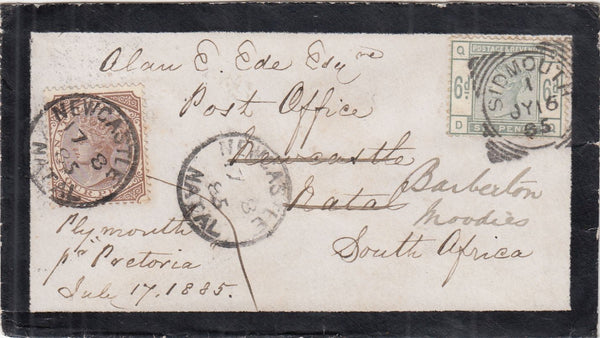 Alan E. Ede Esqre
Post Office
Newcastle
Natal
Barberton
Moodies
South Africa
Plymouth
pr Pretoria
July 17. 1885.
NEWCASTLE
7 8
85
NATAL
NEWCASTLE
7 8
85
NATAL
POSTAGE & REVENUE
Q
6d
D
SIXPENCE
SIDMOUTH
1
JY 16
85